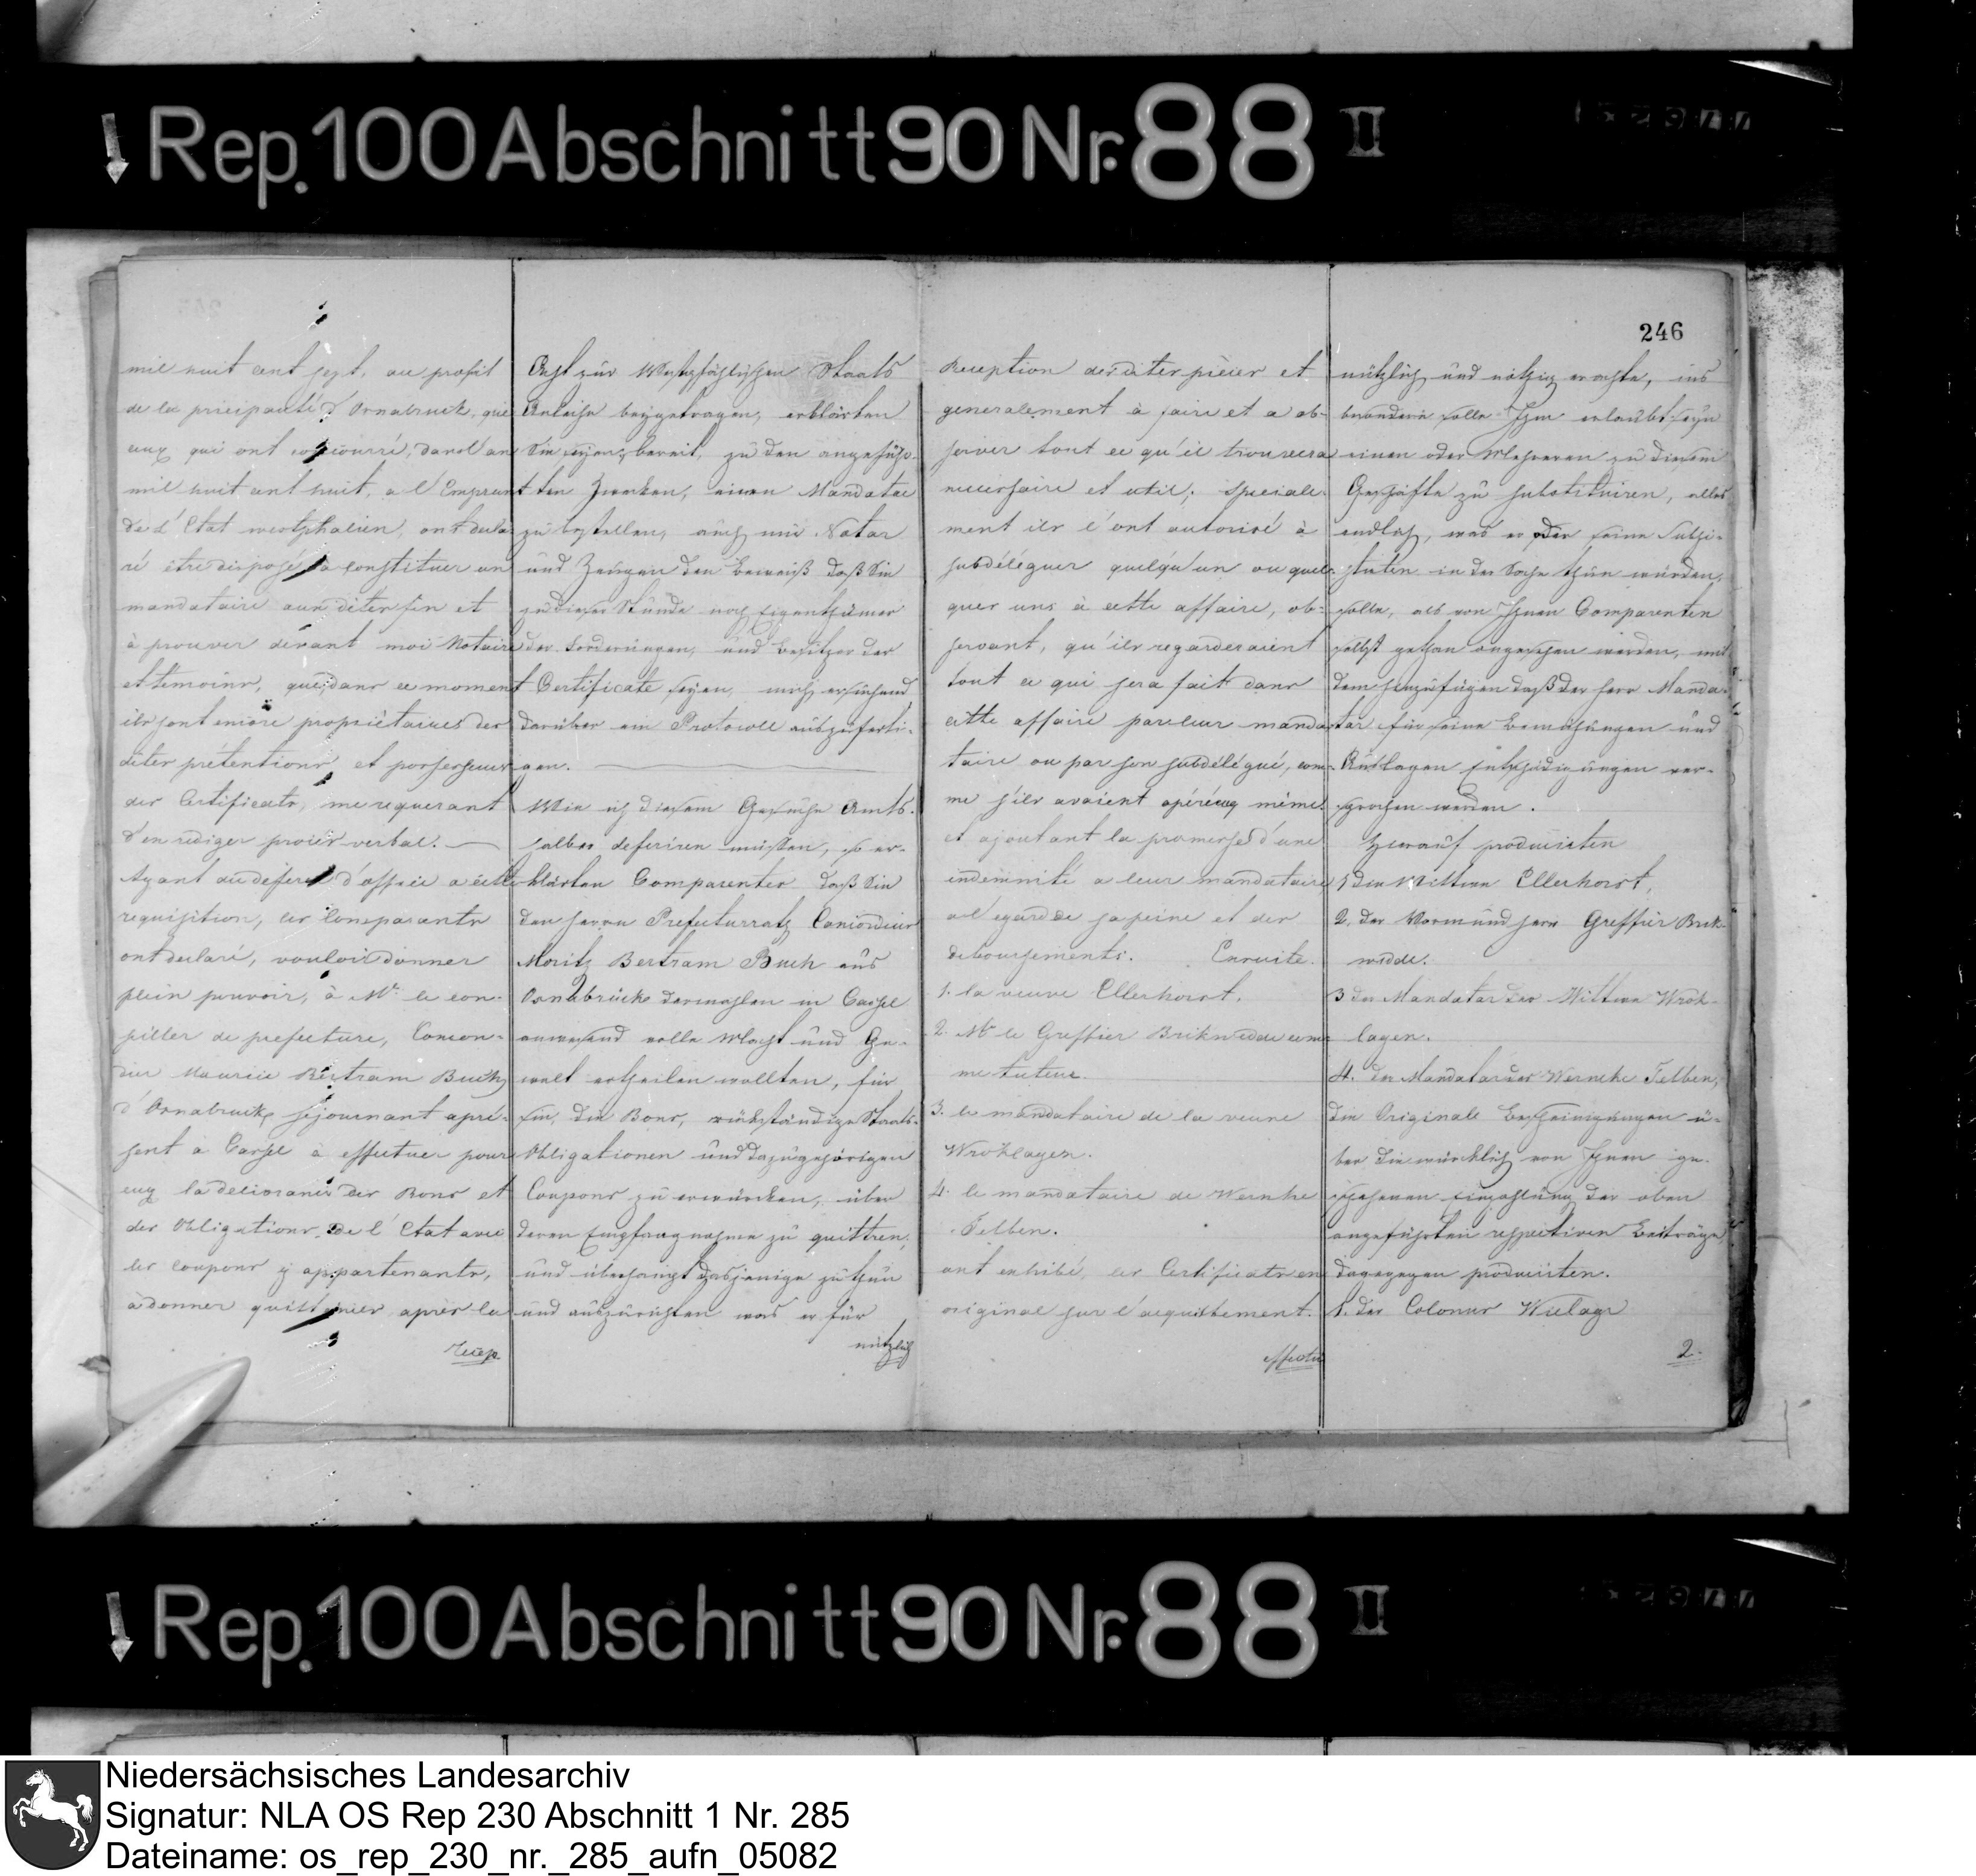 Rep. 100 Abschnitt 90 Nr. 88 II
246
mil huit cent sept, au profit
de la principauté d'Osnabruck, que
ceux qui ont concouru, dans l'an
mil huit cent huit, a l'Emprun
de l'Etat westphalien, ont decla-
ré être disposé à constituer un
mandataire aux dites fin et
à prouver devant moi Notaire
et temoins, que dans ce moment
ils sont encore propriétaires des
dites prétentions et possesseurs
des Certificats, me requerant
d'en rediger procès verbal.
Ayant au deferé d'office a cette
requisition, les Comparants
ont declaré, vouloir donner
plein pouvoir, à Mr. le con-
seiller de prefecture,
Maurice Bertram Buch
d'Osnabruck, sejournant apre-
sent à Cassel à effectuer pour
eux la delivrance des Bons et
des Obligations de l'Etat avec
les coupons y appartenants,
à donner quittances après la
recep
Act zur Westphälischen Staats
Anleihe beygetragen, erklärten
Sie seyen bereit, zu den angeführ-
ten Zwecken, einen Mandatar
zu bestellen, auch mir Notar
und Zeugen den Beweiß daß Sie
zu dieser Stunde noch Eigenthümer
der Forderungen, und Besitzer der
Certificate seyen, mich ersuchend
darüber ein Protocoll auszuferti-
gen.
Wie ich diesem Gesuche Amts-
halber deferiren müssen, so er-
klärten Comparentes daß Sie
den Herrn Prefecturrath
Moritz Bertram Buch aus
Osnabrück dermahlen in Cassel
anwesend volle Macht und Ge-
walt ertheilen wollten, für
sie, die Bons, rückständige Staats-
Obligationen und dazugehörigen
Coupons zu erwürcken, über
deren Empfangnahme zu quittren,
und überhaupt dasjenige zu thun
und auszurichten was er für
nützlich
Reception desdites pièces et
generalement à faire et a ob-
server tout ce qu'il trouvera
necessaire et util; speciale-
ment ils l'ont autorisé à
subdéléguer quelqu'un ou quel-
ques uns à cette affaire, ob-
servant, qu'ils regarderaient
tout ce qui sera fait dans
cette affaire par leur manda-
taire ou par son subdélégué, com-
me s'ils avaient opéré eux mêmes
et ajoutant la promesse d'une
indemnité a leur mandataire
a l'egard de sa peine et des
deboursements. Ensuite.
1. la veuve Ellerhorst.
2. Mr le Greffier Brikwedde com-
me tuteur
3. le mandataire de la veuve
Wroklagen.
4. le mandataire de Wernke
Felben.
ont exhibé, les Certificats en
original sur l'acquittement.
effectu
nützlich und nöthig erachte, ins
besondere solle Ihm erlaubt seyn
einen oder Mehreren zu diesem
Geschäfte zu substituiren, alles
endlich, was er oder seine Substi-
tuten in der Sache thun würden,
solle, als von Ihnen Comparenten
selbst gethan angesehen werden, mit
dem hinzufügen daß der Herr Manda-
tar für seine Bemühungen und
Auslagen Entschädigungen ver-
sprochen werden.
Hierauf producirten
1 die Wittwe Ellerhorst,
2. der Vormund Herr Greffier Brik-
wedde.
3 der Mandatar der Wittwe Wrok-
lagen.
4. der Mandatar des Wernke Felben,
die Originale Bescheinigungen ü-
ber die würcklich von Ihnen ge-
schehenen Einzahlung der oben
angeführten respectiven Beiträge,
dagegen producirten.
1. der Colonus Wielage
2.
Rep. 100 Abschnitt 90 Nr. 88 II
Niedersächsisches Landesarchiv
Signatur: NLA OS Rep 230 Abschnitt 1 Nr. 285
Dateiname: os_rep_230_nr._285_aufn_05082